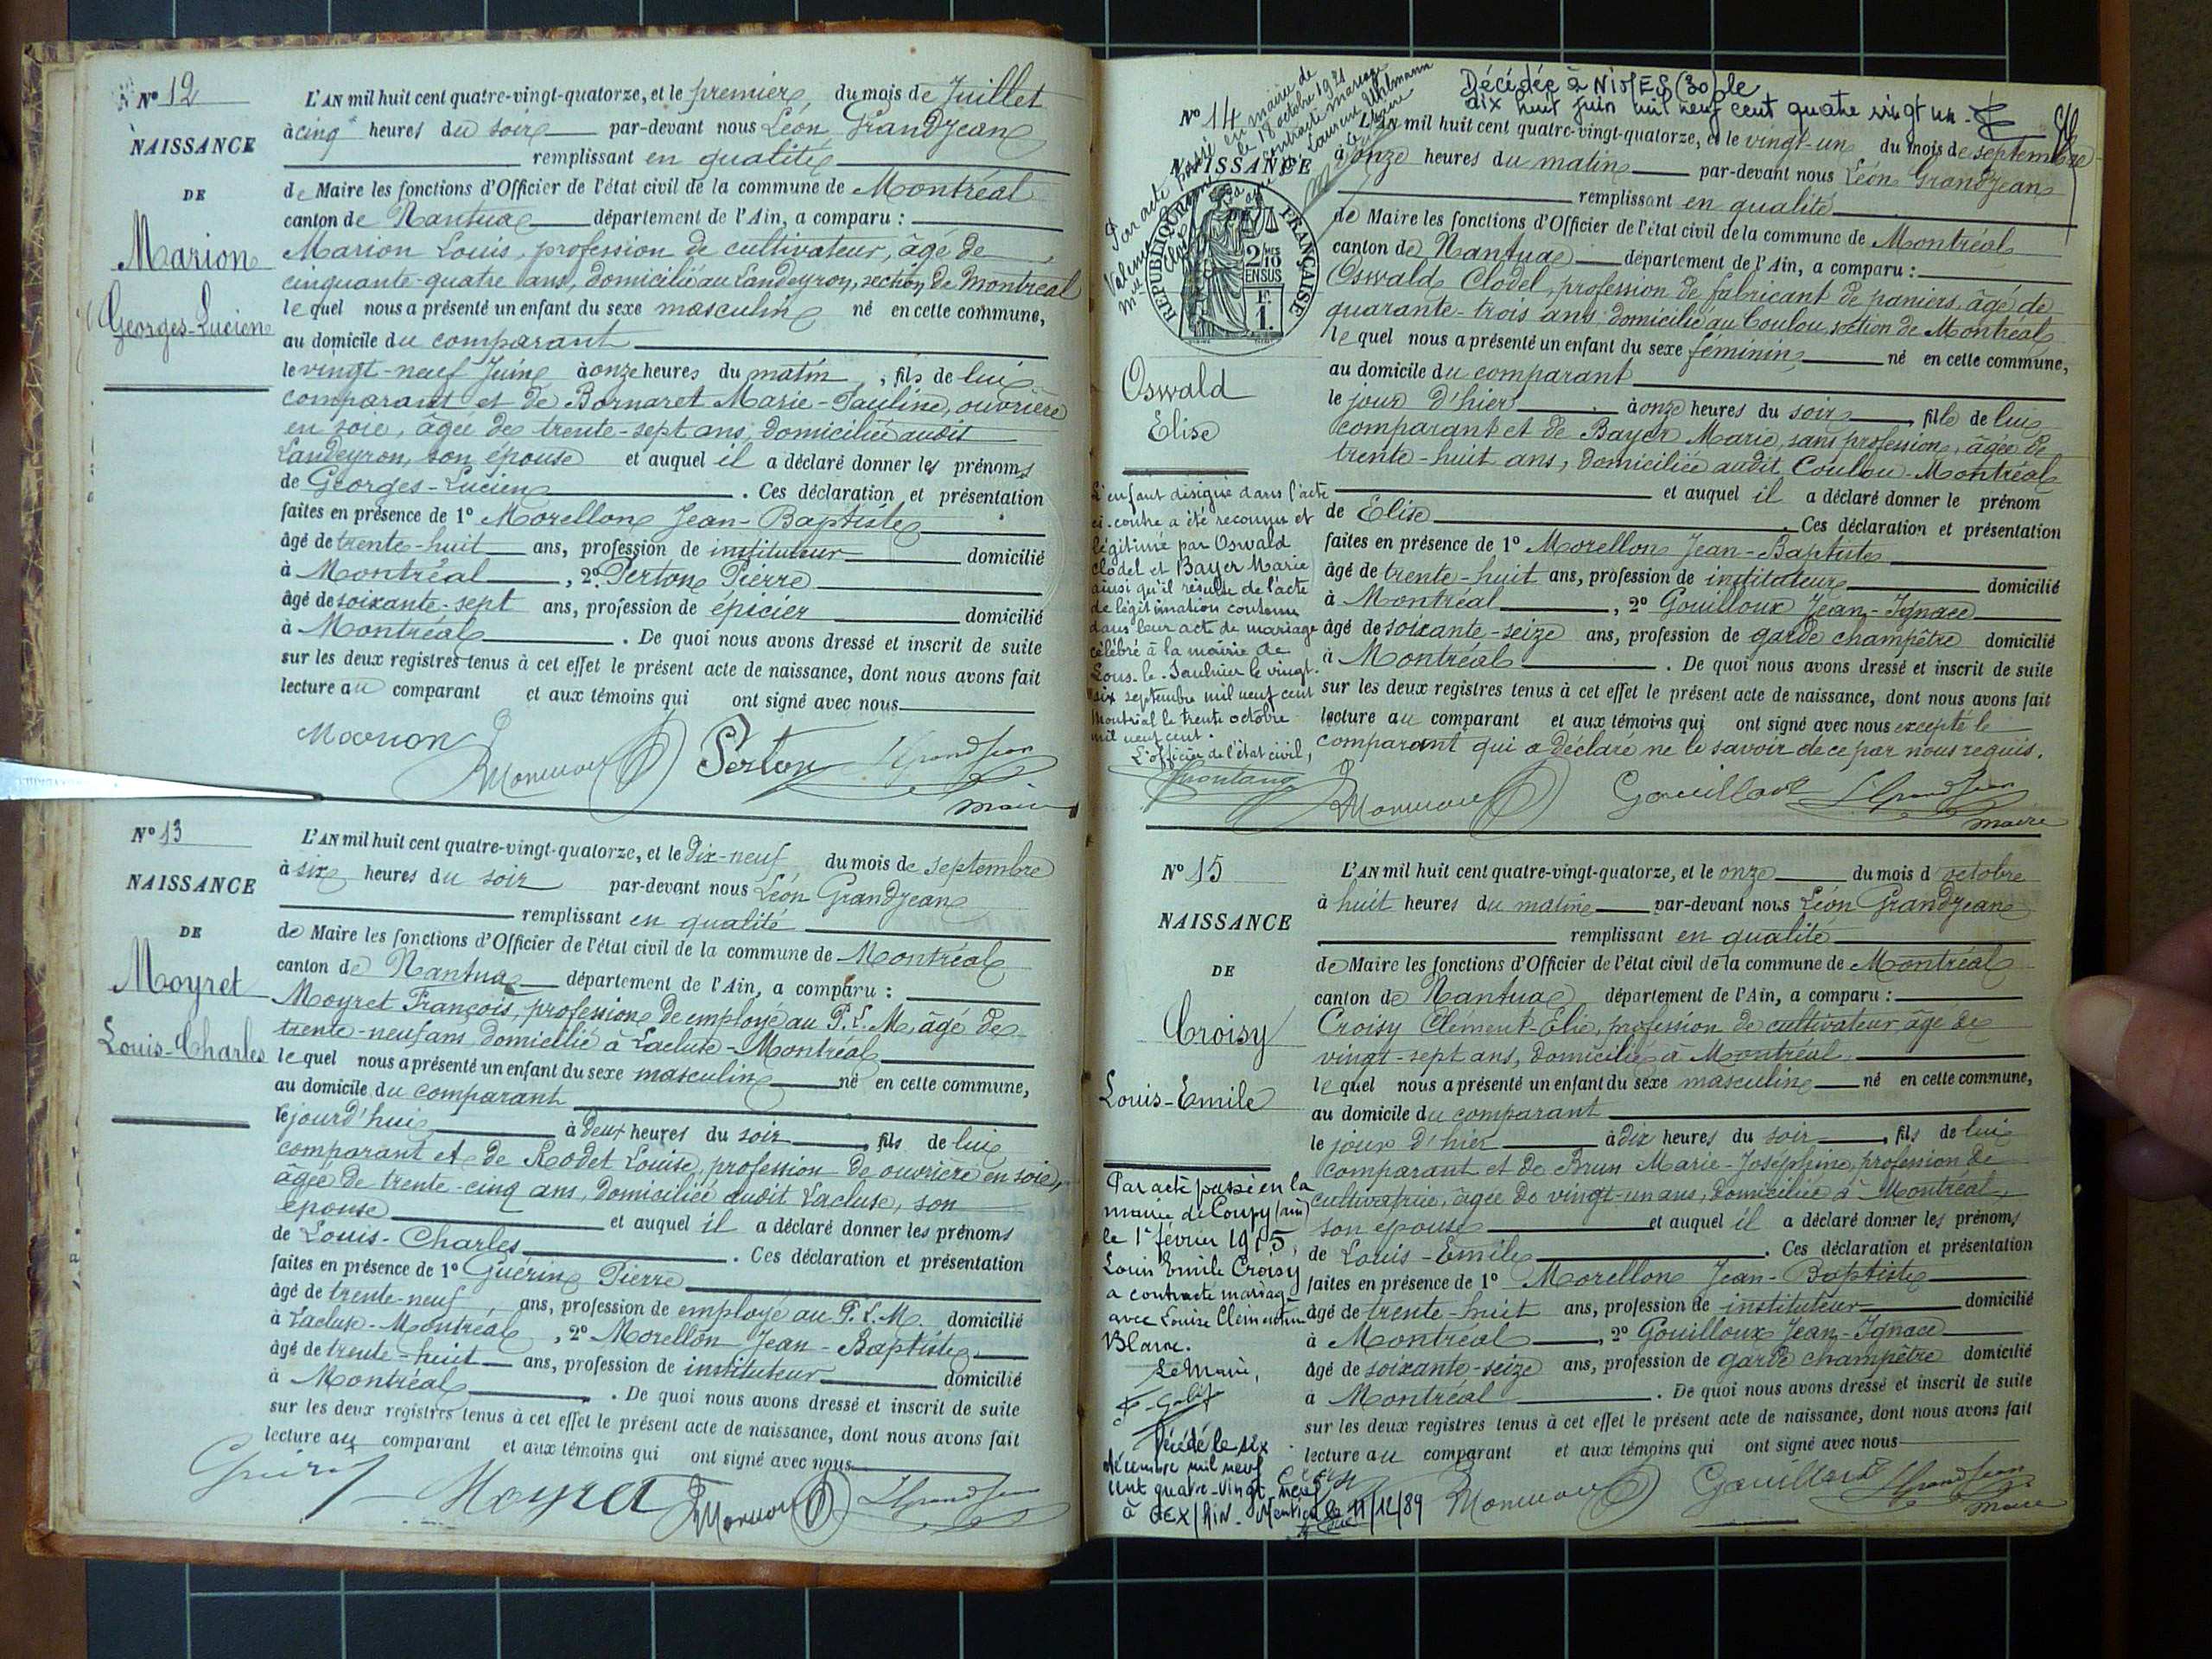 N° 12
NAISSANCE
DE
Marion
Georges-Lucien
L'AN mil huit cent quatre-vingt-quatorze, et le premier du mois de Juillet
à cinq heures du soir par-devant nous Léon Grandjean
remplissant en qualité
de Maire les fonctions d'Officier de l'état civil de la commune de Montréal
canton de Nantua département de l'Ain, a comparu :
Marion Louis, profession de cultivateur, âgé de
cinquante-quatre ans, domicilié au Landeyron, section de Montréal
lequel nous a présenté un enfant du sexe masculin né en cette commune,
au domicile du comparant
le vingt-neuf Juin à onze heures du matin, fils de lui
comparant et de Bornaret Marie-Pauline, ouvrière
en soie, âgée de trente-sept ans, domiciliée audit
Landeyron, son épouse et auquel il a déclaré donner les prénoms
de Georges-Lucien . Ces déclaration et présentation
faites en présence de 1° Morellon Jean-Baptiste
âgé de trente-huit ans, profession de instituteur domicilié
à Montréal , 2° Perton Pierre
âgé de soixante-sept ans, profession de épicier domicilié
à Montréal . De quoi nous avons dressé et inscrit de suite
sur les deux registres tenus à cet effet le présent acte de naissance, dont nous avons fait
lecture au comparant et aux témoins qui ont signé avec nous
Marion Perton LGrandjean
maire
N° 13
NAISSANCE
DE
Moyret
Louis-Charles
L'AN mil huit cent quatre-vingt-quatorze, et le dix-neuf du mois de septembre
à six heures du soir par-devant nous Léon Grandjean
remplissant en qualité
de Maire les fonctions d'Officier de l'état civil de la commune de Montréal
canton de Nantua département de l'Ain, a comparu :
Moyret François, profession de employé au P.L.M, âgé de
trente-neuf ans, domicilié à Lacluse-Montréal
lequel nous a présenté un enfant du sexe masculin né en cette commune,
au domicile du comparant
le jourd'hui à deux heures du soir, fils de lui
comparant et de Rodet Louise, profession de ouvrière en soie,
âgée de trente-cinq ans, domiciliée audit Lacluse, son
épouse et auquel il a déclaré donner les prénoms
de Louis-Charles . Ces déclaration et présentation
faites en présence de 1° Guérin Pierre
âgé de trente-neuf, ans, profession de employé au P.L.M. domicilié
à Lacluse-Montréal , 2° Morellon Jean-Baptiste
âgé de trente-huit ans, profession de instituteur domicilié
à Montréal . De quoi nous avons dressé et inscrit de suite
sur les deux registres tenus à cet effet le présent acte de naissance, dont nous avons fait
lecture au comparant et aux témoins qui ont signé avec nous
Guérin Moyret LGrandjean
Décédée à NIMES (30) le
dix huit juin mil neuf cent quatre vingt un.
N° 14
NAISSANCE
RÉPUBLIQUE FRANÇAISE
2/10 EN SUS
F. 1.
Oswald
Elise
L'enfant désigné dans l'acte
ci-contre a été reconnu et
légitimé par Oswald
Clodel et Bayer Marie
ainsi qu'il résulte de l'acte
de légitimation contenu
dans leur acte de mariage
célébré à la mairie de
Lons-le-Saulnier le vingt-
six septembre mil neuf cent
Montréal le trente octobre
mil neuf cent.
L'officier de l'état civil,
L'AN mil huit cent quatre-vingt-quatorze, et le vingt-un du mois de septembre
à onze heures du matin par-devant nous Léon Grandjean
remplissant en qualité
de Maire les fonctions d'Officier de l'état civil de la commune de Montréal
canton de Nantua département de l'Ain, a comparu :
Oswald Clodel, profession de fabricant de paniers, âgé de
quarante-trois ans, domicilié au Coulou, section de Montréal
lequel nous a présenté un enfant du sexe féminin né en cette commune,
au domicile du comparant
le jour d'hier à onze heures du soir, fille de lui
comparant et de Bayer Marie, sans profession, âgée de
trente-huit ans, domiciliée audit Coulou-Montréal
et auquel il a déclaré donner le prénom
de Elise . Ces déclaration et présentation
faites en présence de 1° Morellon Jean-Baptiste
âgé de trente-huit ans, profession de instituteur domicilié
à Montréal , 2° Gouilloux Jean-Ignace
âgé de soixante-seize ans, profession de garde champêtre domicilié
à Montréal . De quoi nous avons dressé et inscrit de suite
sur les deux registres tenus à cet effet le présent acte de naissance, dont nous avons fait
lecture au comparant et aux témoins qui ont signé avec nous excepté le
comparant qui a déclaré ne le savoir de ce par nous requis.
Gouilloux LGrandjean
maire
N° 15
NAISSANCE
DE
Croisy
Louis-Emile
Par acte passé en la
mairie de Coupy (ain)
le 1er février 1915,
Louis Emile Croisy
a contracté mariage
avec Louise Clémentine
Blanc.
Le Maire,
Décédé le six
décembre mil neuf
cent quatre-vingt-neuf
à GEX/AIN. Mention le 11/12/89
L'AN mil huit cent quatre-vingt-quatorze, et le onze du mois d'octobre
à huit heures du matin par-devant nous Léon Grandjean
remplissant en qualité
de Maire les fonctions d'Officier de l'état civil de la commune de Montréal
canton de Nantua département de l'Ain, a comparu :
Croisy Clément-Elie, profession de cultivateur, âgé de
vingt-sept ans, domicilié à Montréal
lequel nous a présenté un enfant du sexe masculin né en cette commune,
au domicile du comparant
le jour d'hier à dix heures du soir, fils de lui
comparant et de Brun Marie-Joséphine, profession de
cultivatrice, âgée de vingt-un ans, domiciliée à Montréal,
son épouse et auquel il a déclaré donner les prénoms
de Louis-Emile . Ces déclaration et présentation
faites en présence de 1° Morellon Jean-Baptiste
âgé de trente-huit ans, profession de instituteur domicilié
à Montréal , 2° Gouilloux Jean-Ignace
âgé de soixante-seize ans, profession de garde champêtre domicilié
à Montréal . De quoi nous avons dressé et inscrit de suite
sur les deux registres tenus à cet effet le présent acte de naissance, dont nous avons fait
lecture au comparant et aux témoins qui ont signé avec nous
Gouilloux LGrandjean
maire